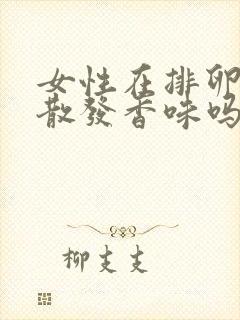 女性在排卵
散發香味吗
柳支支